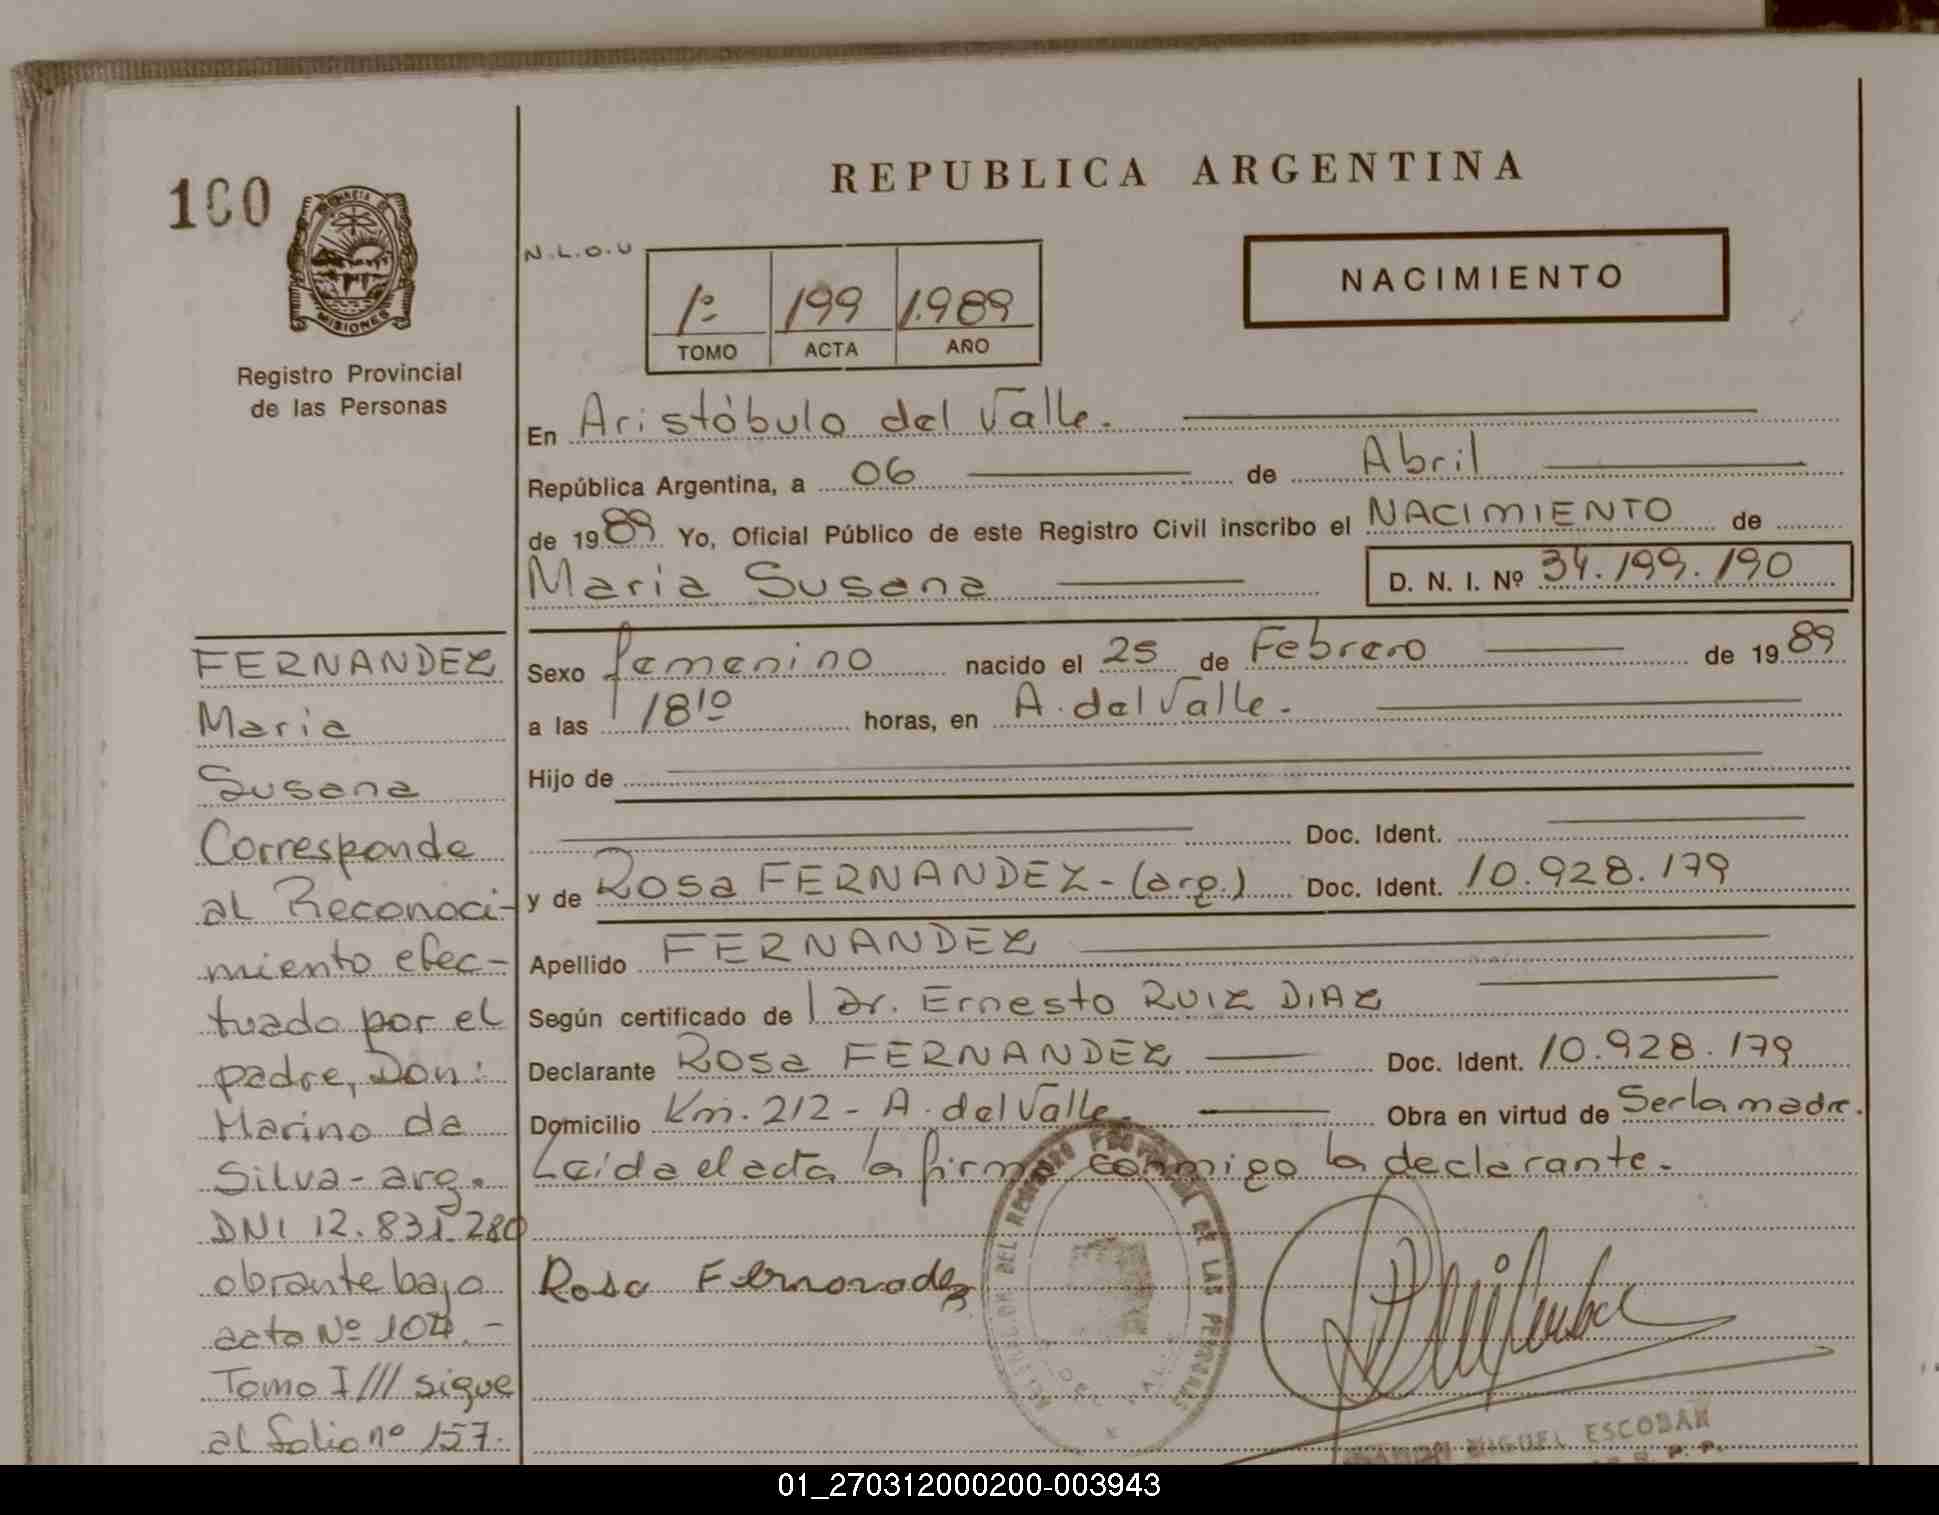 100
PROVINCIA DE
MISIONES
Registro Provincial
de las Personas
REPUBLICA ARGENTINA
N.L.O.U
1º 199 1.989
TOMO ACTA AÑO
NACIMIENTO
En Aristóbulo del Valle.
República Argentina, a 06 de Abril
de 1989 Yo, Oficial Público de este Registro Civil inscribo el NACIMIENTO de
Maria Susana D. N. I. Nº 34.199.190
Sexo femenino nacido el 25 de Febrero de 1989
a las 18¹⁰ horas, en A. del Valle.
Hijo de
Doc. Ident.
y de Rosa FERNANDEZ - (arg.) Doc. Ident. 10.928.179
Apellido FERNANDEZ
Según certificado de l dr. Ernesto RUIZ DIAZ
Declarante Rosa FERNANDEZ Doc. Ident. 10.928.179
Domicilio Km. 212 - A. del Valle. Obra en virtud de Ser la madre.
Leída el acta la firma conmigo la declarante.
Rosa Fernonodez
DEL REGISTRO PROVINCIAL DE LAS PERSONAS
MIGUEL ESCOBAR
FERNANDEZ
Maria
Susana
Corresponde
al Reconoci-
miento efec-
tuado por el
padre, Don:
Marino da
Silva - arg.
DNI 12.831.280
obrante bajo
acta Nº 104. -
Tomo I /// sigue
al folio nº 157.
01_270312000200-003943